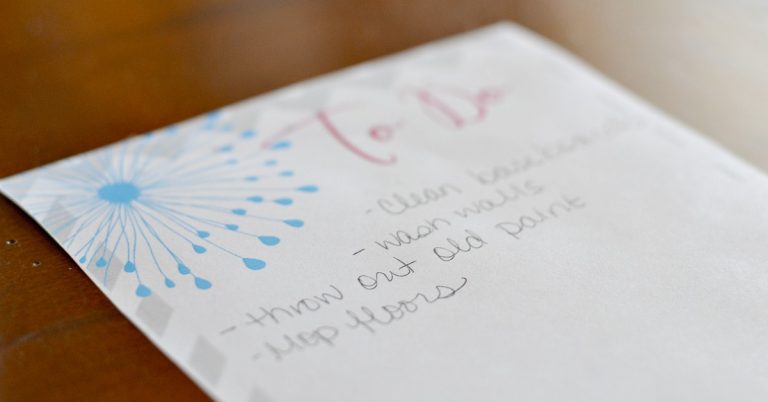 To Do
- Clean baseboards
- wash walls
- throw out old paint
- Mop floors